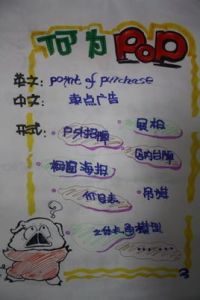 何为POP
英文: point of purchase
中文: 卖点广告
形式: 户外招牌
展板
橱窗海报
店内台牌
吊旗
立体卡通模型
......
3